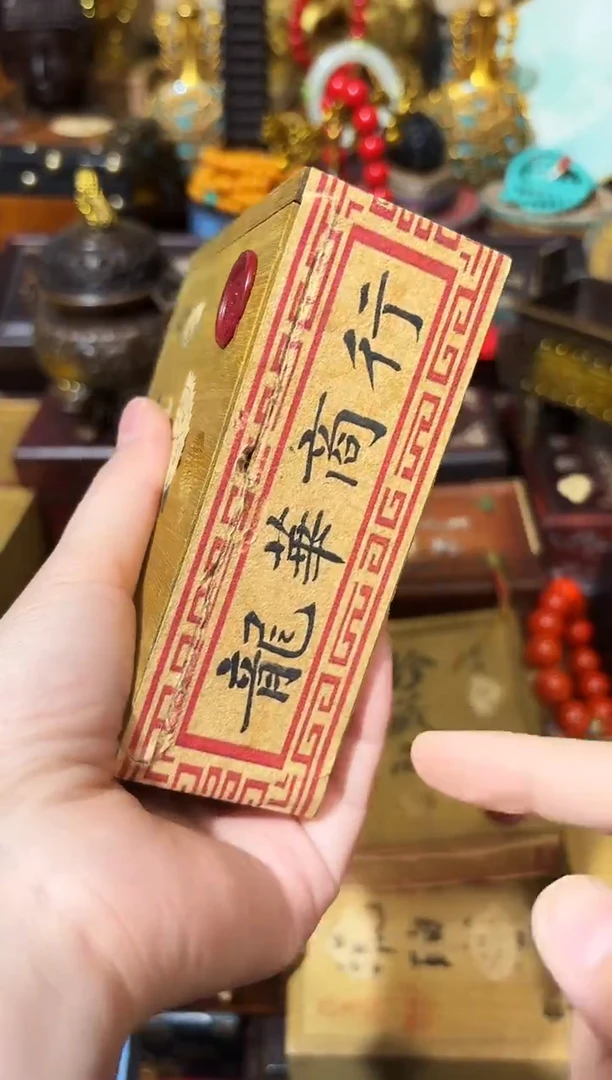 龍華商行